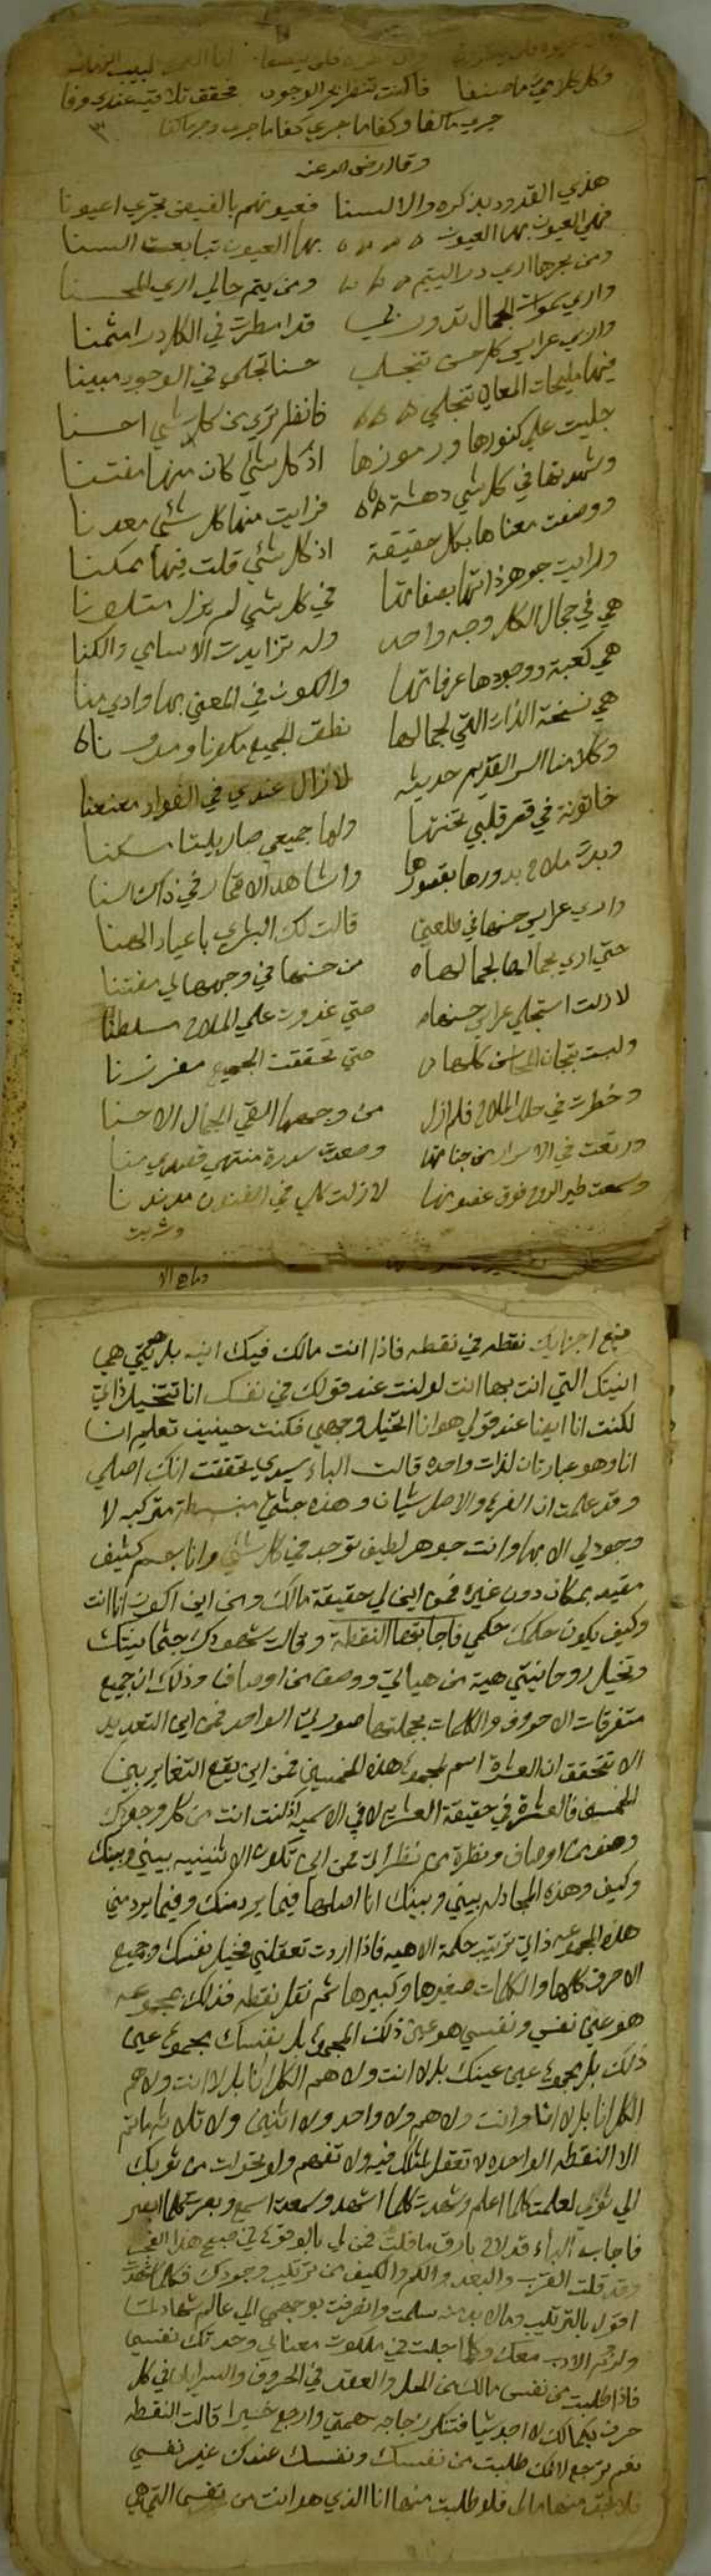 وكل كلامي ما صنفا فاكنت تنقرا الوجود محقق تلاقيه عندي وفا
جرى ما كفا وكفا ما جرى كفا ما جرى وجرى ما كفا
وقال رضي الله عنه
هذي القدود بذكره والالسنا فعيونهم بالفيض تجري اعيونا
فهي العيون بها العيون بها العيون تبايعت السنا
ومن بحرها اري در اليتيم ومن يتم حالي اري المحسنا
واري سموات الجمال تدور بي قد امطرت في الكل درا مثمنا
واري عرايس كل حسن تنجلي حسنا تجلي في الوجود مبينا
فيها مليحات المعاني تنجلي فانظر تري من كل شي احسنا
جليت علي كنوزها ورموزها اذ كل شي كان منها مفتنا
وشهدتها في كل شي دهشة فرايت منها كل شي معدنا
ووصفت معناها بكل حقيقة اذ كل شي قلت فيها ممكنا
ورايت جوهر ذاتها بصفاتها في كل شي لم يزل متلونا
هي في جمال الكل وجه واحد وله تزايدت الاسامي والكنا
هي كعبة ووجودها عرفاتها والكون في المعني بها وادي منا
هي نسخة الذات التي لجمالها نطق الجميع
وكلامنا السر القديم حديثه لازال عندي في الفواد معنعنا
خاتونة في قصر قلبي تختها ولها جميعي صار بيتا مسكنا
وبدت ملاح بدورها بقصورها واشاهد الاقمار في ذاك السنا
واري عرايس حسنها في طلعتي قالت لك البشري باعياد الهنا
حتي اري بجمالها لجمالها من حسنها في وجهها لي مفتنا
لازلت استجلي عرايس حسنها حتي غدوت علي الملاح مسلطنا
ولبست تيجان المحاسن كلها حتي تحققت الجميع
وخطرت في حلل الملاح فلم ازل من وجهها القي الجمال الاحسنا
ورتعت في الاسرار من جناتها وصعدت سدرة منتهي
وسمعت طير الروح فوق غصونها لازلت كلي في الفنون مدندنا
وشربت
جميع اجزايك نقطه في نقطه فاذا انت مالك فيك انيه بل هيتي هي
انيتك التي انت بها انت لو كنت عند قولك في نفسك انا تتخيل ذاتي
لكنت انا ايضا عند قولي هو انا اتخيل وجهي فكنت حينيذ تعلم ان
انا وهو عبارتان لذات واحده قالت الباء سيدي تحققت انك اصلي
وقد علمت ان الفرع والاصل شيان وهذه جثتي منبسطة متركبه لا
وجود لي الا بها وانت جوهر لطيف توجد في كل شي وانا جسم كثيف
مقيد بمكان دون غيره فمن اين لي حقيقة مالك ومن اين اكون انا انت
وكيف يكون حكمك حكمي فاجابتها النقطة وقالت شهودك جثمانيتك
وتخيل روحانيتي هية من هياتي ووصف من اوصافي وذلك ان جميع
متفرقات الاحروف والكلمات بجملتها صورتي الواحد فمن اين التعديد
الا تتحقق ان العشرة اسم لمجموع هذه الخمسين فمن اين يقع التغاير بين
الخمسة والعشرة في حقيقة العشرة لا في الاسميه اذ كنت انت من كل وجوهك
وصف من اوصافي ونظرة من نظراتي فمن اين تكون الاثنينيه بيني وبينك
وكيف وهذه المجادله بيني وبينك انا اصلها فيما يرد منك وفيما يرد مني
هذه المجموعه ذاتي ترتيب حكمة الاهيه فاذا اردت تعقلني فتخيل نفسك وجميع
الاحرف كلها والكلمات صغيرها وكبيرها ثم نقل نقطه فذلك بمجموعه
هو عين نفسي ونفسي هو عين ذلك المجموع بل نفسك بمجموع عين
ذلك بل مجموع عين عينك بل لا انت ولا هم الكل انا بل لا انت ولا هم
الكل انا بل لا انا ولا انت ولا هم ولا واحد ولا اثنين ولا ثلاثه ما ثم
الا النقطه الواحده لا تعقل لمثالك فيه ولا تفهم ولو تحولت من ثوبك
الي ثوبي لعلمت كلما اعلم وشهدت كلما اشهد وسمعت كلما اسمع وبصرت كلما ابصر
فاجاب الباء قد لاح بارق ما قلت فمن لي بالوقوع في صبح هذا الفجر
وقد قلت القرب والبعد والكم والكيف من ترتيب وجودك فكلما شهدت
اقول بالترتيب وما لا بد منه سلمت وانصرفت بوجهي الي عالم شهادتنا
ولزم الادب معك وكلما جلت في ملكوت معناني وجدتك نفسي
فاذا طلبت من نفسي مالك من الحل والعقد في الحروف والسريان في كل
حرف بكمالك لا اجد شيا فتنكسر زجاجه همتي وارجع خسيرا قالت النقطه
نعم ترجع لانك طلبت من نفسك ونفسك عندك غير نفسي
فلا تجد منها مالي فلو طلبت منها انا الذي هو انت من نفسي التي هي